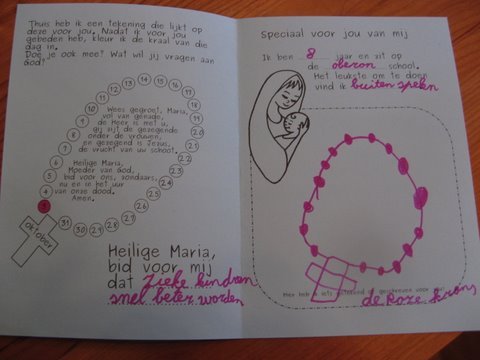 Thuis heb ik een tekening die lijkt op
deze voor jou. Nadat ik voor jou
gebeden heb, kleur ik de kraal van die
dag in.
Doe je ook mee? Wat wil jij vragen aan
God?
1
4
5
6
7
8
9
10
11
12
13
14
15
16
17
18
19
20
21
22
23
24
25
26
27
28
29
30
31
Wees gegroet, Maria,
vol van genade,
de Heer is met u,
gij zijt de gezegende
onder de vrouwen,
en gezegend is Jezus,
de vrucht van uw schoot.
Heilige Maria,
Moeder van God,
bid voor ons, zondaars,
nu en in het uur
van onze dood.
Amen.
oktober
Heilige Maria,
bid voor mij
dat zieke kindren
snel beter worden
Speciaal voor jou van mij
Ik ben 8 jaar en zit op
de oberon school.
Het leukste om te doen
vind ik buiten spelen
Hier heb ik iets getekend of geschreven voor jou:
de Roze krans